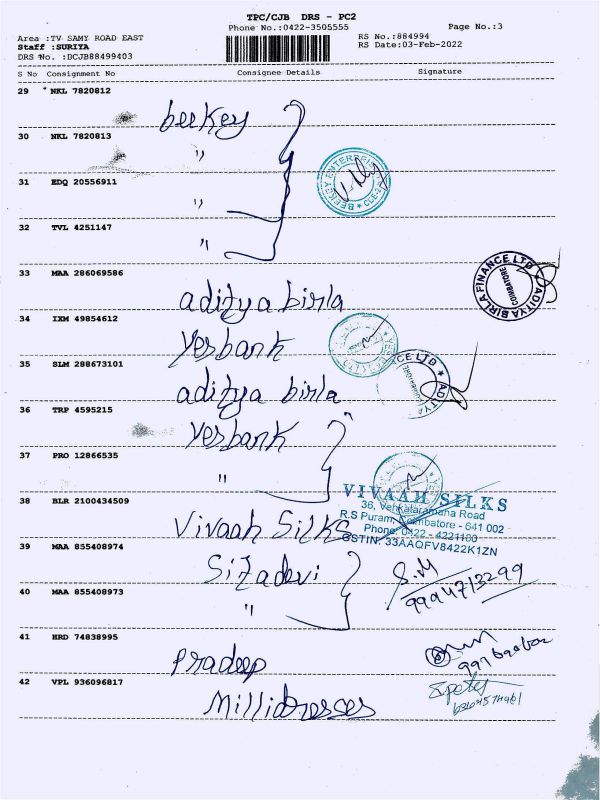 TPC/CJB DRS - PC2
Phone No.:0422-3505555 Page No.:3
Area :TV SAMY ROAD EAST RS No.:884994
Staff :SURIYA RS Date:03-Feb-2022
DRS No. :DCJB88499403
S No Consignment No Consignee Details Signature
29 * NKL 7820812 beekey
30 NKL 7820813 "
BEEKEY ENTERPRISES
31 EDQ 20556911 "
32 TVL 4251147 "
33 MAA 286069586 aditya birla
ADITYA BIRLA FINANCE LTD COIMBATORE
34 IXM 49854612 Yesbank
35 SLM 288673101 aditya birla
CE LTD ADITYA COIMBATORE
36 TRP 4595215 Yesbank
37 PRO 12866535 "
38 BLR 2100434509 Vivaah Silks
VIVAAH SILKS
36, Venkataramana Road
R.S Puram, Coimbatore - 641 002
Phone: 0422 - 4221100
GSTIN: 33AAQFV8422K1ZN
39 MAA 855408974 Sitadevi
S.M
9994713299
40 MAA 855408973 "
41 HRD 74838995 Pradeep
42 VPL 936096817 Millidresses